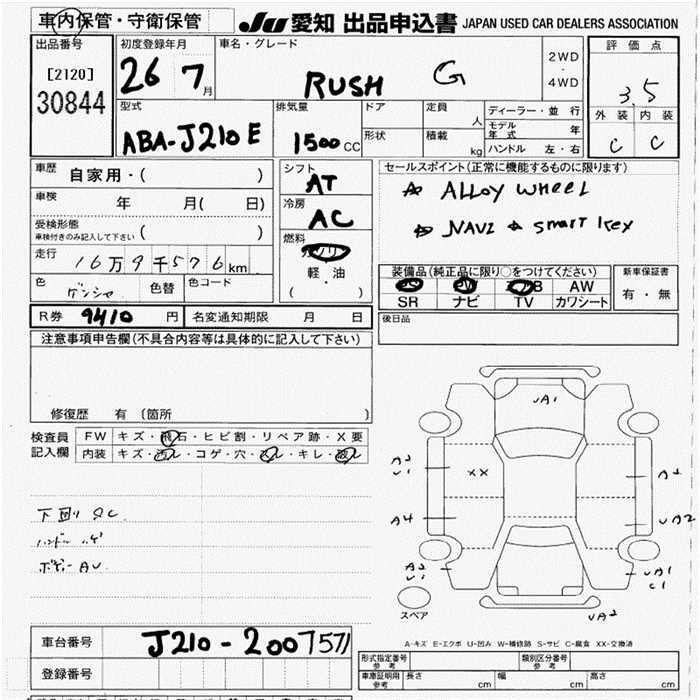 車内保管・守衛保管
JU 愛知 出品申込書 JAPAN USED CAR DEALERS ASSOCIATION
出品番号
[2120]
30844
初度登録年月
26 7 月
車名・グレード
RUSH G
2WD
・
4WD
評価点
3.5
外装 内装
C C
型式
ABA-J210E
排気量
1500 CC
ドア
形状
定員
人
積載
kg
ディーラー・並行
モデル年式 年
ハンドル 左・右
車歴
自家用・( )
車検
年 月( 日)
受検形態
車検付きのみ記入して下さい ( )
走行
16万9千576km
色
色替
色コード
シフト
AT
冷房
AC
燃料
ガソリン
軽・油
( )
セールスポイント(正常に機能するものに限ります)
☆ ALLOY WHEEL
☆ NAVI ☆ smart key
装備品(純正品に限り○をつけてください)
PS PW AW
SR ナビ TV カワシート
新車保証書
有・無
R券 9410 円
名変通知期限 月 日
後日品
注意事項申告欄(不具合内容等は具体的に記入して下さい)
修復歴 有 〔箇所 〕
検査員
記入欄
FW キズ・飛石・ヒビ割・リペア跡・X要
内装 キズ・汚レ・コゲ・穴・スレ・キレ・破レ
下回り SC
ハンドル ハゲ
ボデー AU
UA1
A2
U1
XX
A2
A4
UA2
A2
U1
UA1
C1
スペア
UA2
A-キズ E-エクボ U-凹み W-補修跡 S-サビ C-腐食 XX-交換済
車台番号
J210-2007571
登録番号
形式指定番号
参考
類別区分番号
参考
車庫証明用
参考
長さ cm
幅 cm
高さ cm